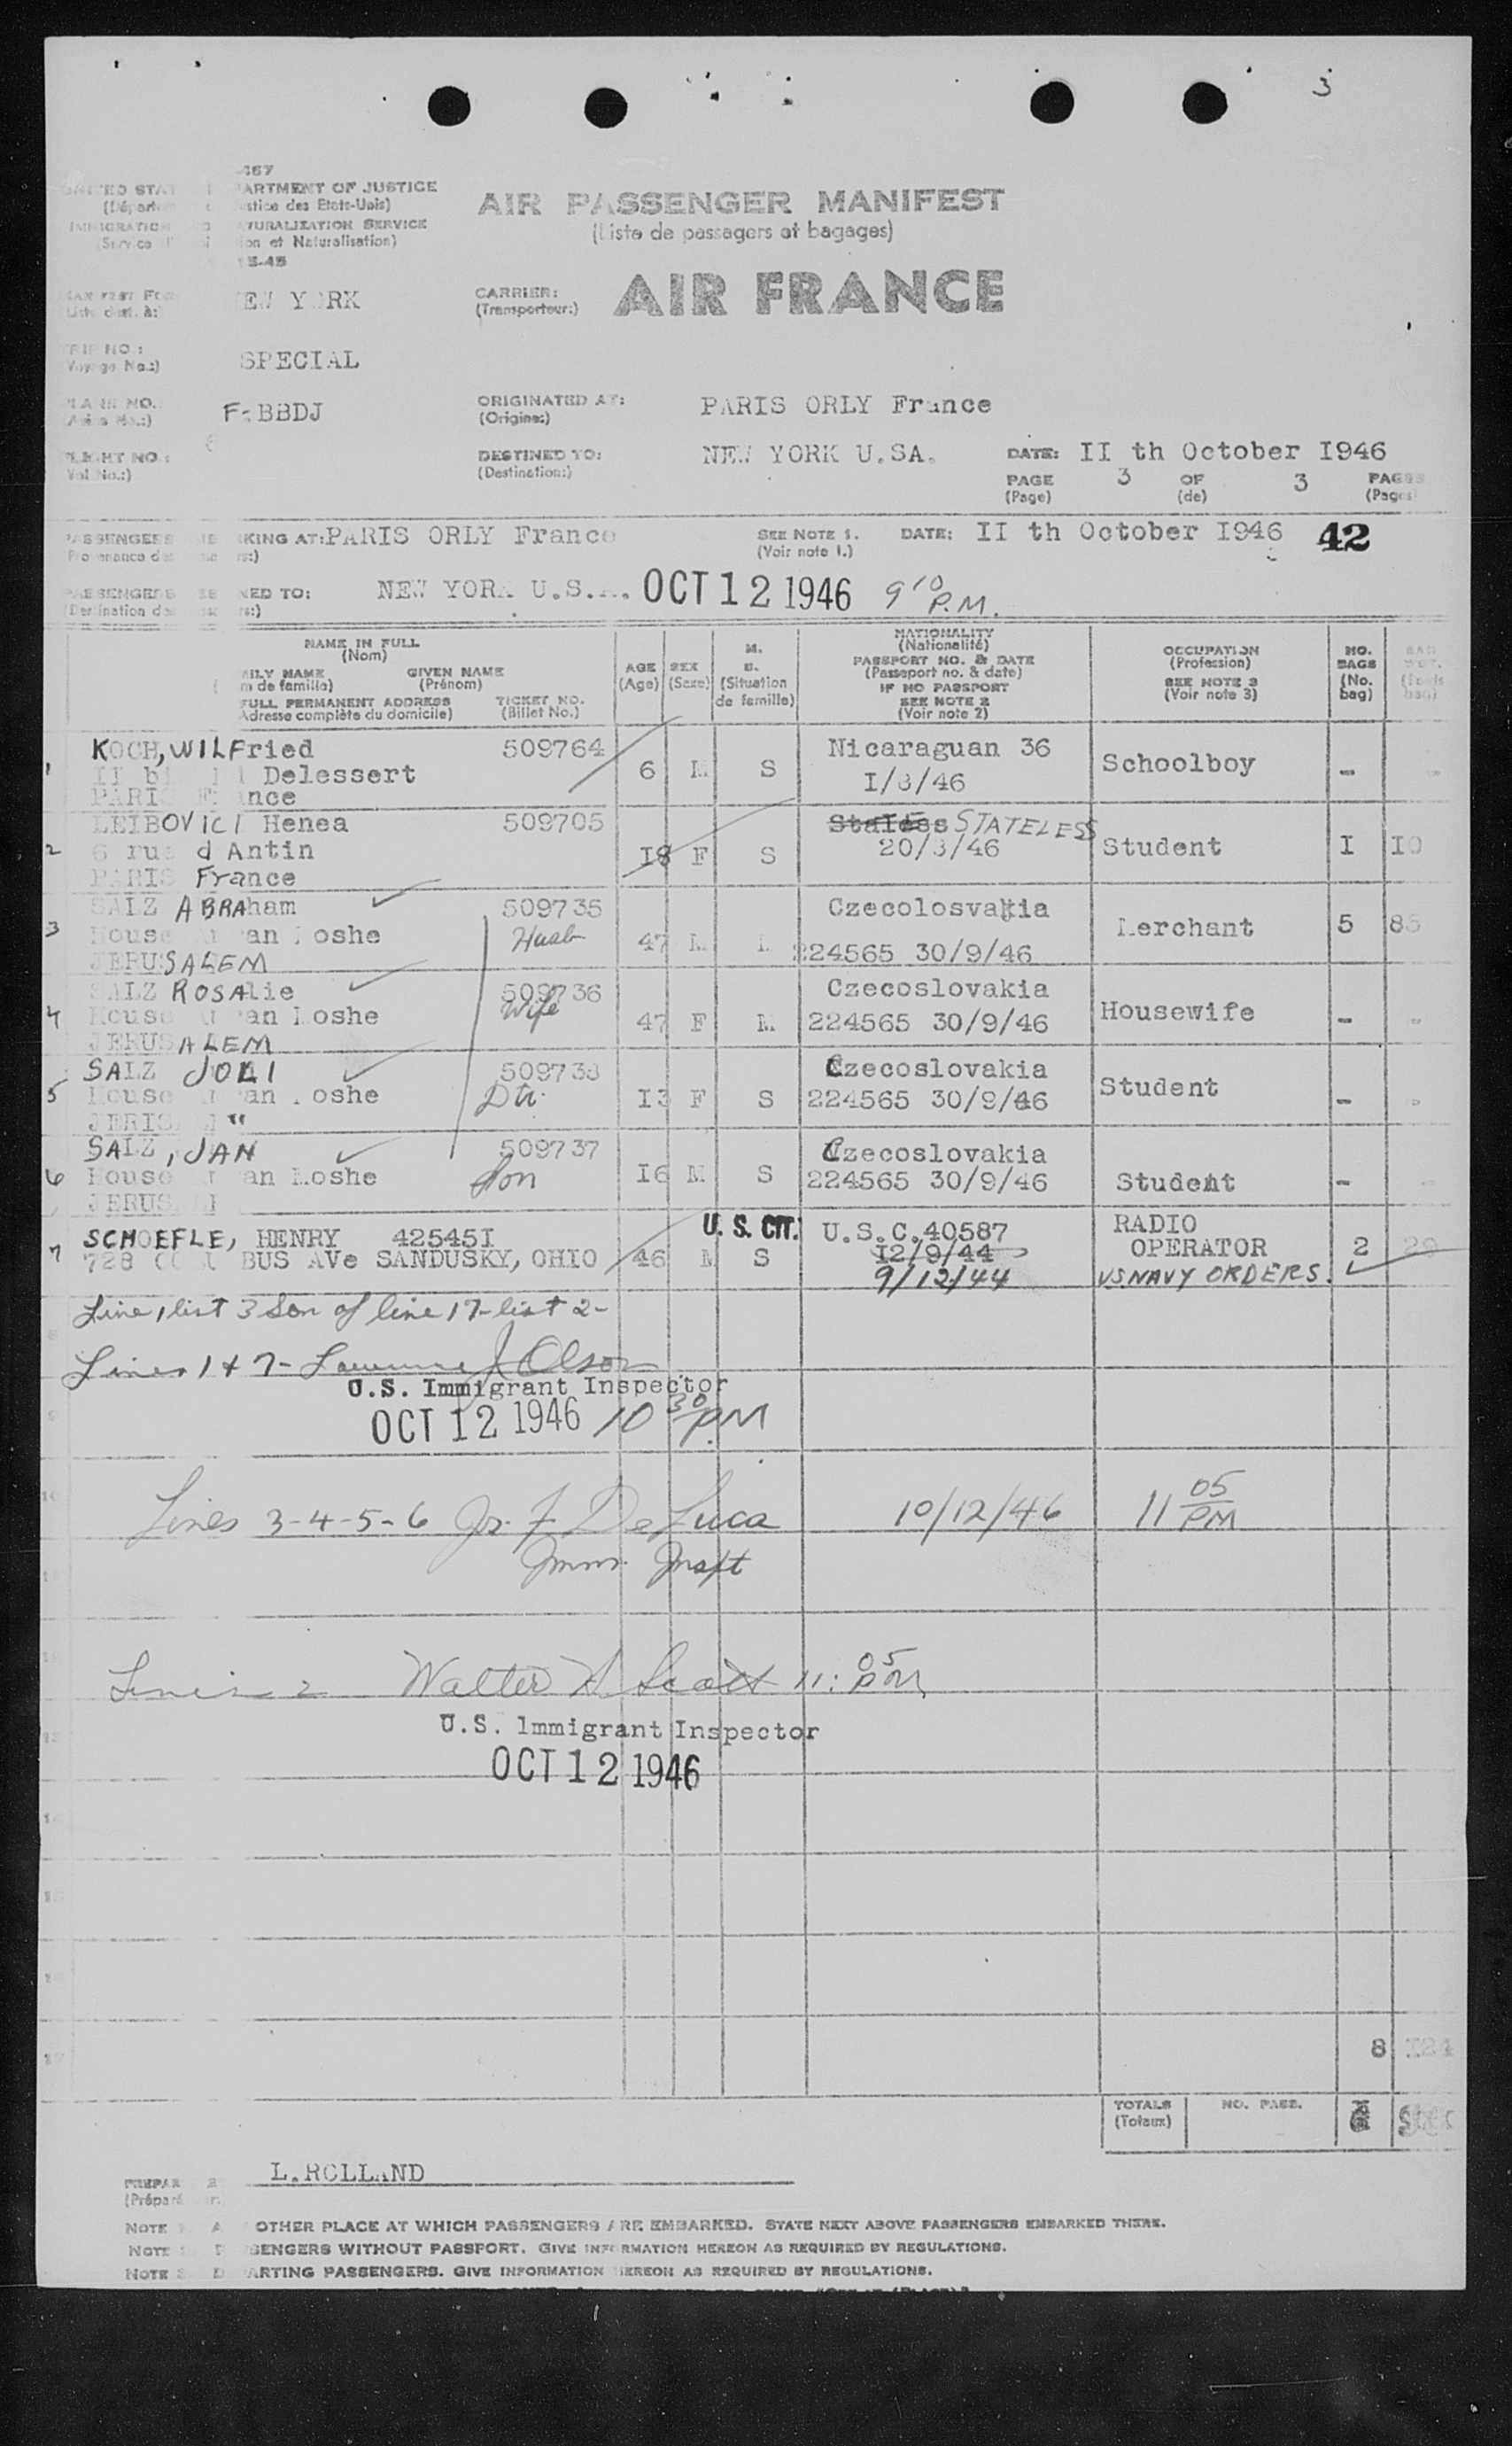 3
-467
ARTMENT OF JUSTICE
AIR PASSENGER MANIFEST
(Liste de passagers et bagages)
stice des Etats-Unis)
TURALIZATION SERVICE
ion et Naturalisation)
15-45
EW YORK
CARRIER:
(Transporteur:)
AIR FRANCE
TRIP NO.:
SPECIAL
PLANE NO.
F-BBDJ
ORIGINATED AT:
(Origine:)
PARIS ORLY France
FLIGHT NO.:
Vol No.:)
DESTINED TO:
(Destination:)
NEW YORK U.SA.
DATE: II th October I946
PAGE 3 OF 3 PAGES
(Page) (de) (Pages)
PASSENGERS KING AT: PARIS ORLY France
SEE NOTE 1.
(Voir note 1.)
DATE: II th October I946 42
NED TO: NEW YORK U.S.A. OCT 12 1946 9 10 P.M.
NAME IN FULL
(Nom)
ILY NAME GIVEN NAME
m de famille) (Prénom)
FULL PERMANENT ADDRESS TICKET NO.
Adresse complète du domicile) (Billet No.)
AGE
(Age)
SEX
(Sexe)
M.
S.
(Situation
de famille)
NATIONALITY
(Nationalité)
PASSPORT NO. & DATE
(Passeport no. & date)
IF NO PASSPORT
SEE NOTE 2
(Voir note 2)
OCCUPATION
(Profession)
SEE NOTE 3
(Voir note 3)
NO.
BAGS
(No.
bag)
1 KOCH, WILFried 509764 6 M S Nicaraguan 36 Schoolboy -
Delessert I/3/46
PARIS France
2 LEIBOVICI Henea 509705 I8 F S Staless STATELESS Student I I0
6 rue d Antin 20/3/46
PARIS France
3 SALZ ABRAham 509735 47 M M Czecolosvakia Merchant 5 85
House an Moshe Husb 224565 30/9/46
JERUSALEM
4 SALZ ROSAlie 509736 47 F M Czecoslovakia Housewife -
House an Moshe Wife 224565 30/9/46
JERUSALEM
5 SALZ JOLI 509738 I3 F S Czecoslovakia Student -
House an Moshe Dtr. 224565 30/9/46
"
6 SALZ, JAN 509737 I6 M S Czecoslovakia Student -
House an Moshe Son 224565 30/9/46
7 SCHOEFLE, HENRY 42545I 46 M S U.S. CIT. U.S.C.40587 RADIO OPERATOR 2 29
728 COLUMBUS AVe SANDUSKY, OHIO I2/9/44
9/12/44 US NAVY ORDERS.
Line 1 list 3 Son of line 17-list 2-
Lines 1 & 7- Lawrence J. Olson
U.S. Immigrant Inspector
OCT 12 1946 10 30 PM
Lines 3-4-5-6 Jr. F. DeLuca 10/12/46 11 05 PM
Imm. Inspt
2 Walter Scott 11:05 PM
U.S. Immigrant Inspector
OCT 12 1946
8 I24
TOTALS
(Totaux)
NO. PASS.
L.ROLLAND
OTHER PLACE AT WHICH PASSENGERS ARE EMBARKED. STATE NEXT ABOVE PASSENGERS EMBARKED THERE.
SENGERS WITHOUT PASSPORT. GIVE INFORMATION HEREON AS REQUIRED BY REGULATIONS.
ARTING PASSENGERS. GIVE INFORMATION HEREON AS REQUIRED BY REGULATIONS.